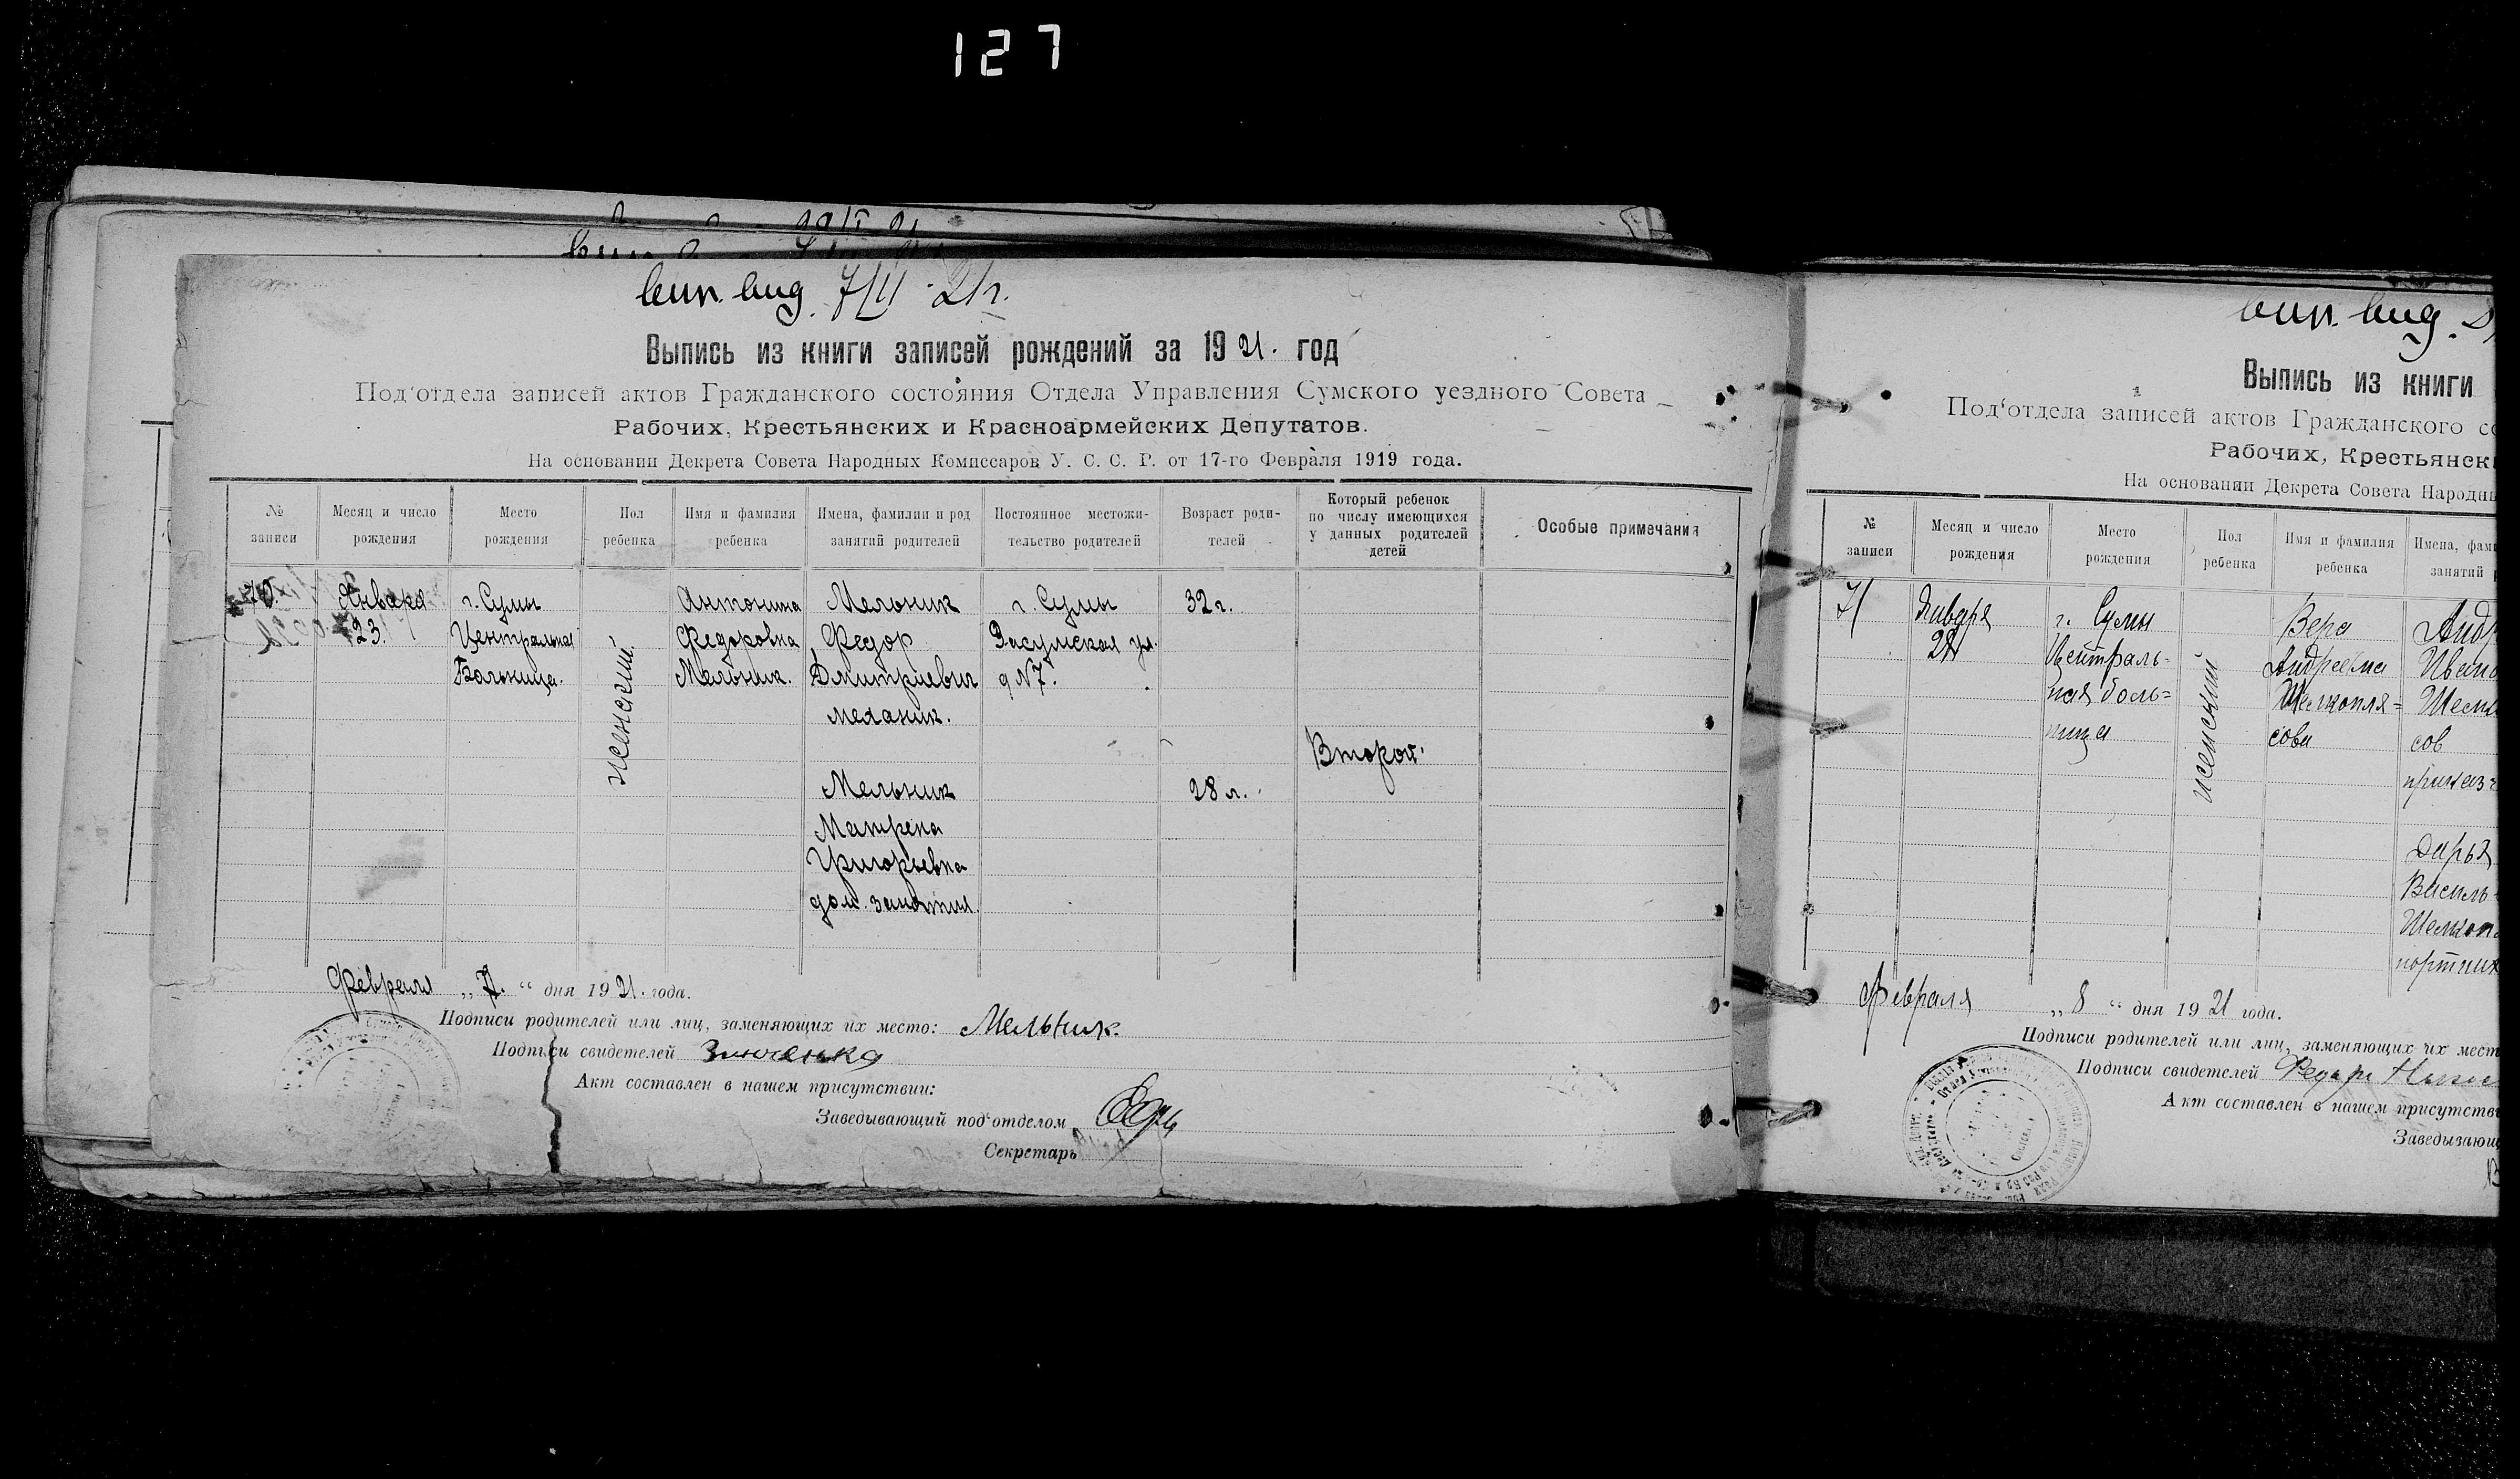 127
вып. выд. 7/II 21г.
Выпись из книги записей рождений за 1921. год
Под'отдела записей актов Гражданского состояния Отдела Управления Сумского уездного Совета
Рабочих, Крестьянских и Красноармейских Депутатов.
На основании Декрета Совета Народных Комиссаров У. С. С. Р. от 17-го Февраля 1919 года.
№ записи
Месяц и число рождения
Место рождения
Пол ребенка
Имя и фамилия ребенка
Имена, фамилии и род занятий родителей
Постоянное местожительство родителей
Возраст родителей
Который ребенок по числу имеющихся у данных родителей детей
Особые примечания
70.
Января
23.
г. Сумы
Центральная
Больница.
женский.
Антонина
Федоровна
Мельник.
Мельник
Федор
Дмитриевич
механик.
Мельник
Матрена
Григорьевна
дом. занятия.
г. Сумы
Засумская ул.
д №7.
32 г.
28 л.
Второй.
Февраля „ 7. “ дня 1921. года.
Подписи родителей или лиц, заменяющих их место: Мельник.
Подписи свидетелей
Акт составлен в нашем присутствии:
Заведывающий под'отделом
Секретарь
вып. выд.
Выпись из книги
Под'отдела записей актов Гражданского со
Рабочих, Крестьянск
На основании Декрета Совета Народн
№ записи
Месяц и число рождения
Место рождения
Пол ребенка
Имя и фамилия ребенка
Имена, фам
занятий
71
Января
г. Сумы
Централь-
ная боль=
ница
женский
Вера
Андреевна
Шелкопля=
сова
Андр
Ивано
Шелк
сов
приказ=
Дарья
Василь
Шелкоп
портних
Февраля „ 8 “ дня 1921 года.
Подписи родителей или лиц, заменяющих их мест
Подписи свидетелей
Акт составлен в нашем присутстви
Заведывающ